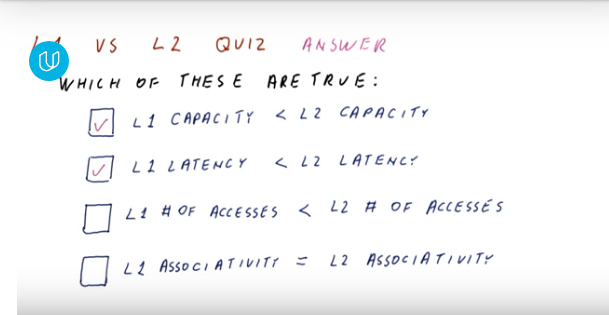 L1 VS L2 QUIZ ANSWER
WHICH OF THESE ARE TRUE:
L1 CAPACITY < L2 CAPACITY
L1 LATENCY < L2 LATENCY
L1 # OF ACCESSES < L2 # OF ACCESSES
L1 ASSOCIATIVITY = L2 ASSOCIATIVITY